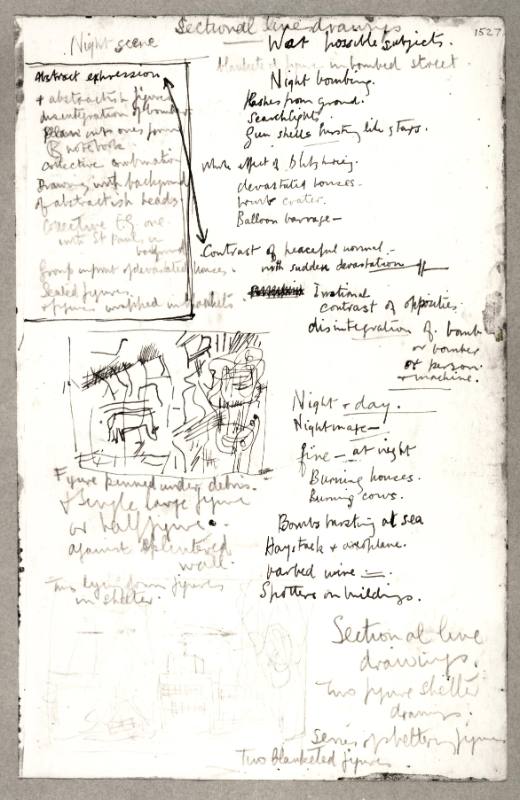 Sectional line drawings
1527
Night scene
War possible subjects.
blanketed figures in bombed street.
Abstract expression
+ abstractish figures
disintegration of bomber
into ones from
notebook
combination
Drawing with background
of abstractish heads
one
with St Pauls in
background
Group in front of devastated houses.
Seated figures
figures wrapped in blankets
Night bombing.
flashes from ground.
Searchlights
Gun shells bursting like stars.
Whole effect of Blitzkrieg.
devastated houses.
bomb crater.
Balloon barrage —
Contrast of peaceful normal —
with sudden devastation
Irrational
contrast of opposites.
disintegration of bomb
or bomber
or person
+ machine.
Night + day.
Nightmare —
fire — at night
Burning houses.
Burning cows.
Bombs bursting at sea
Haystack + aeroplane.
barbed wire —
Spotters on buildings.
Figure pinned under debris.
+ Single large figure
or half figure.
against splintered
wall.
Two lying down figures
in shelter.
Sectional line
drawings.
Two figure shelter
drawings.
Series of sheltering figures
Two Blanketed figures